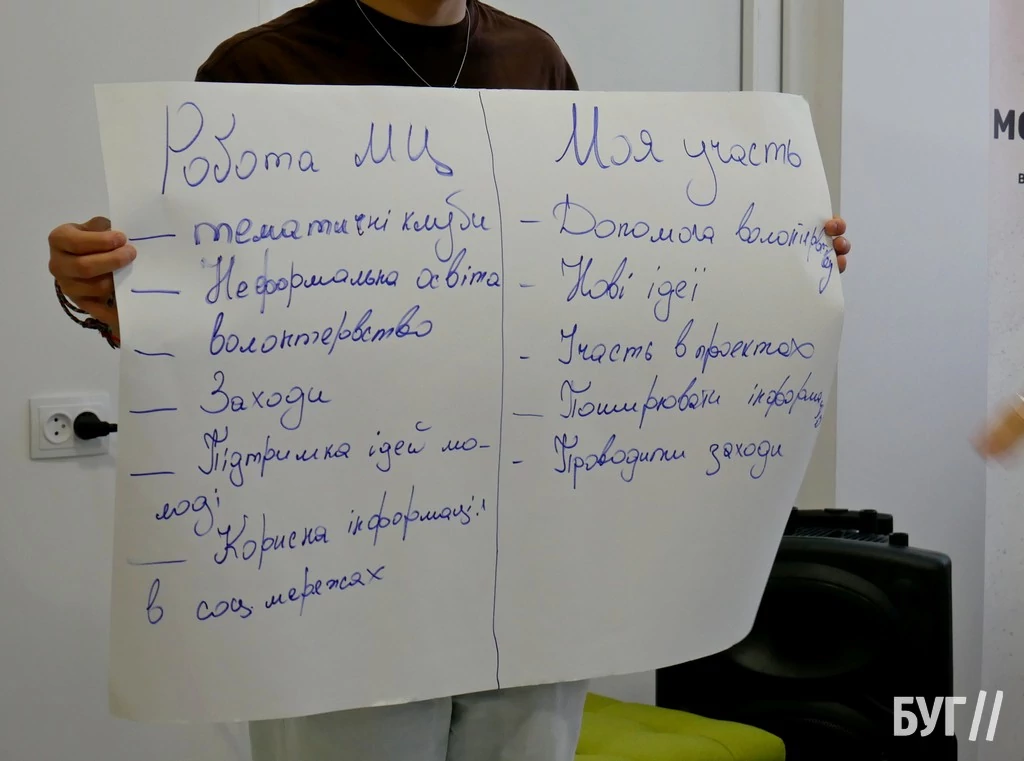 Робота МЦ
— тематичні клуби
— Неформальна освіта
— волонтервство
— Заходи
— Підтримка ідей мо-
лоді
— Корисна інформація
в соц мережах
Моя участь
- Допомога
- Нові ідеї
- Участь в проектах
— Поширювати
- Проводити заходи
МО
В
БУГ//